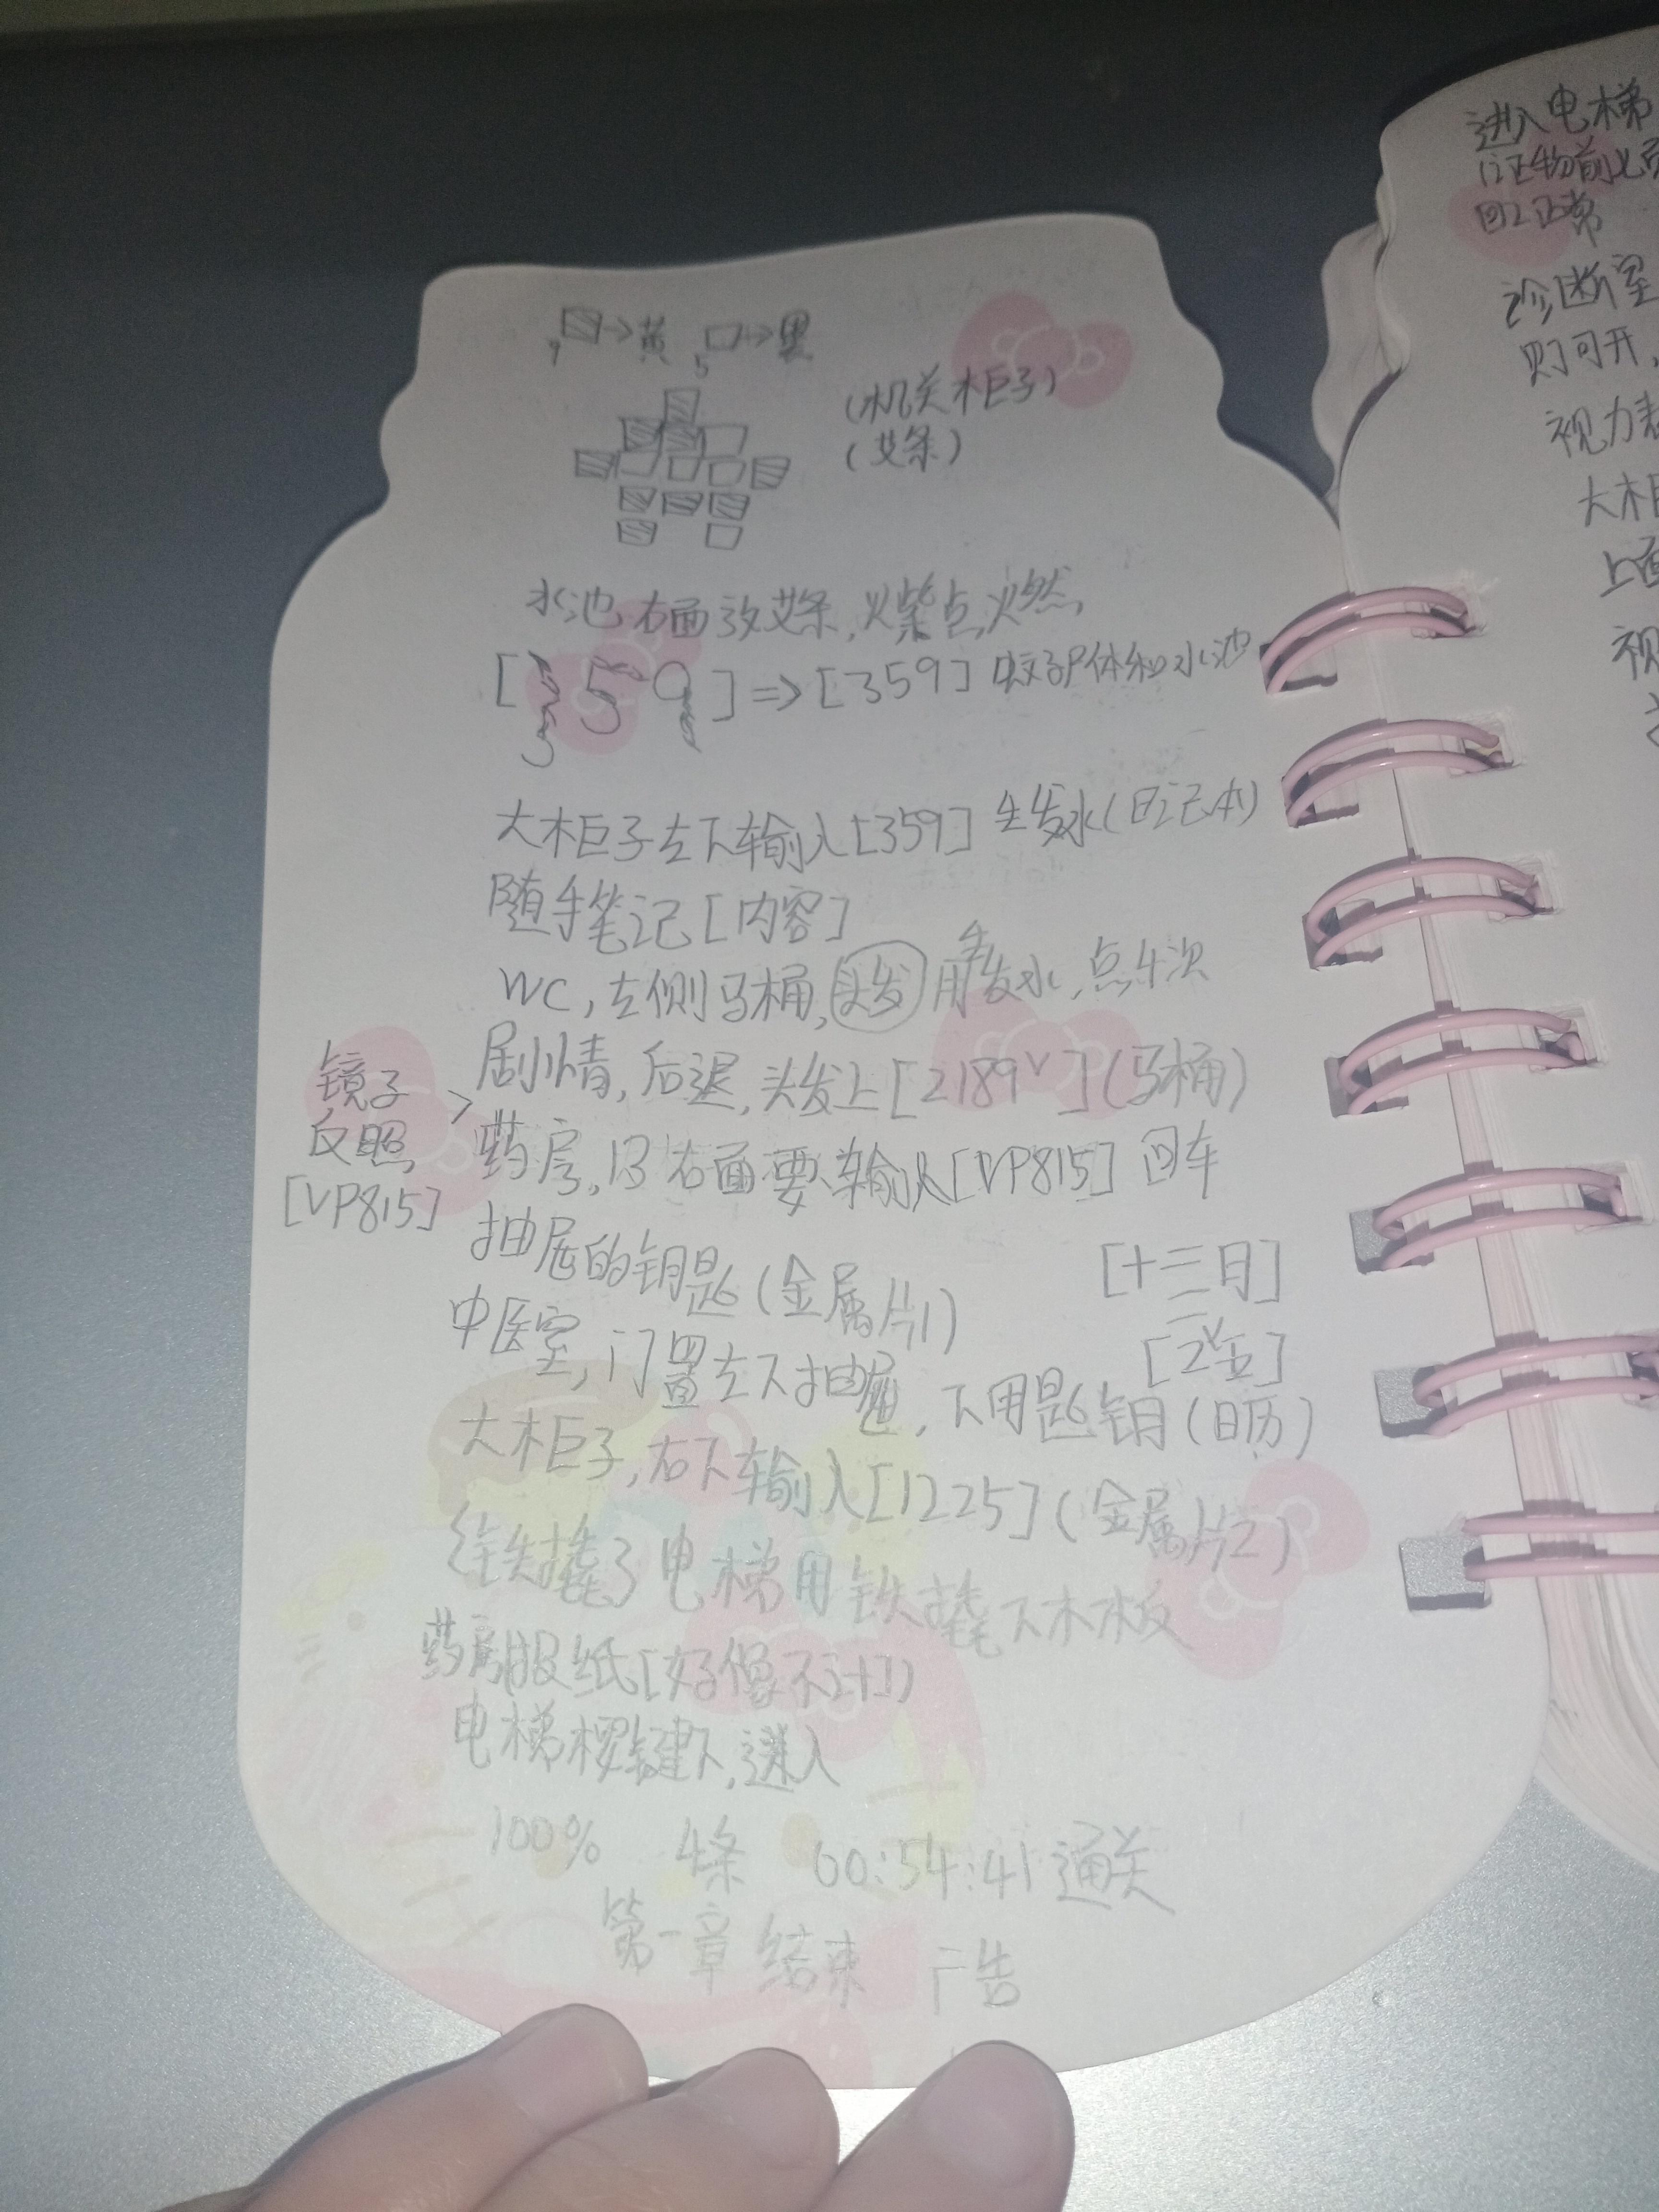 9 → 黄 5 → 黑
(机关木柜子)
(艾条)
水池右面放艾条,火柴点火燃,
[359] => [359] 蚊子尸体和水池
大木巨子左下车输入[359] 生发水(日记本)
随手笔记[内容]
WC,左侧马桶,头发用生发水,点4次
剧情,后退,头发上[2189V](马桶)
镜子
反照 >
[VP815]
药房,13右面要输入[VP815]回车
抽屉的钥匙(金属片1)
[十二月]
中医室,门置左下抽屉,下用匙钥(日历)
大木巨子,右下输入[1225](金属片2)
铁撬了电梯用铁撬下木木板
药房报纸[好像不计])
电梯楼键下,进入
100% 4条 00:54:41通关
第一章 结束 广告
进入电梯
证物前
诊断室
则可开,
视力表
大木
上面
视